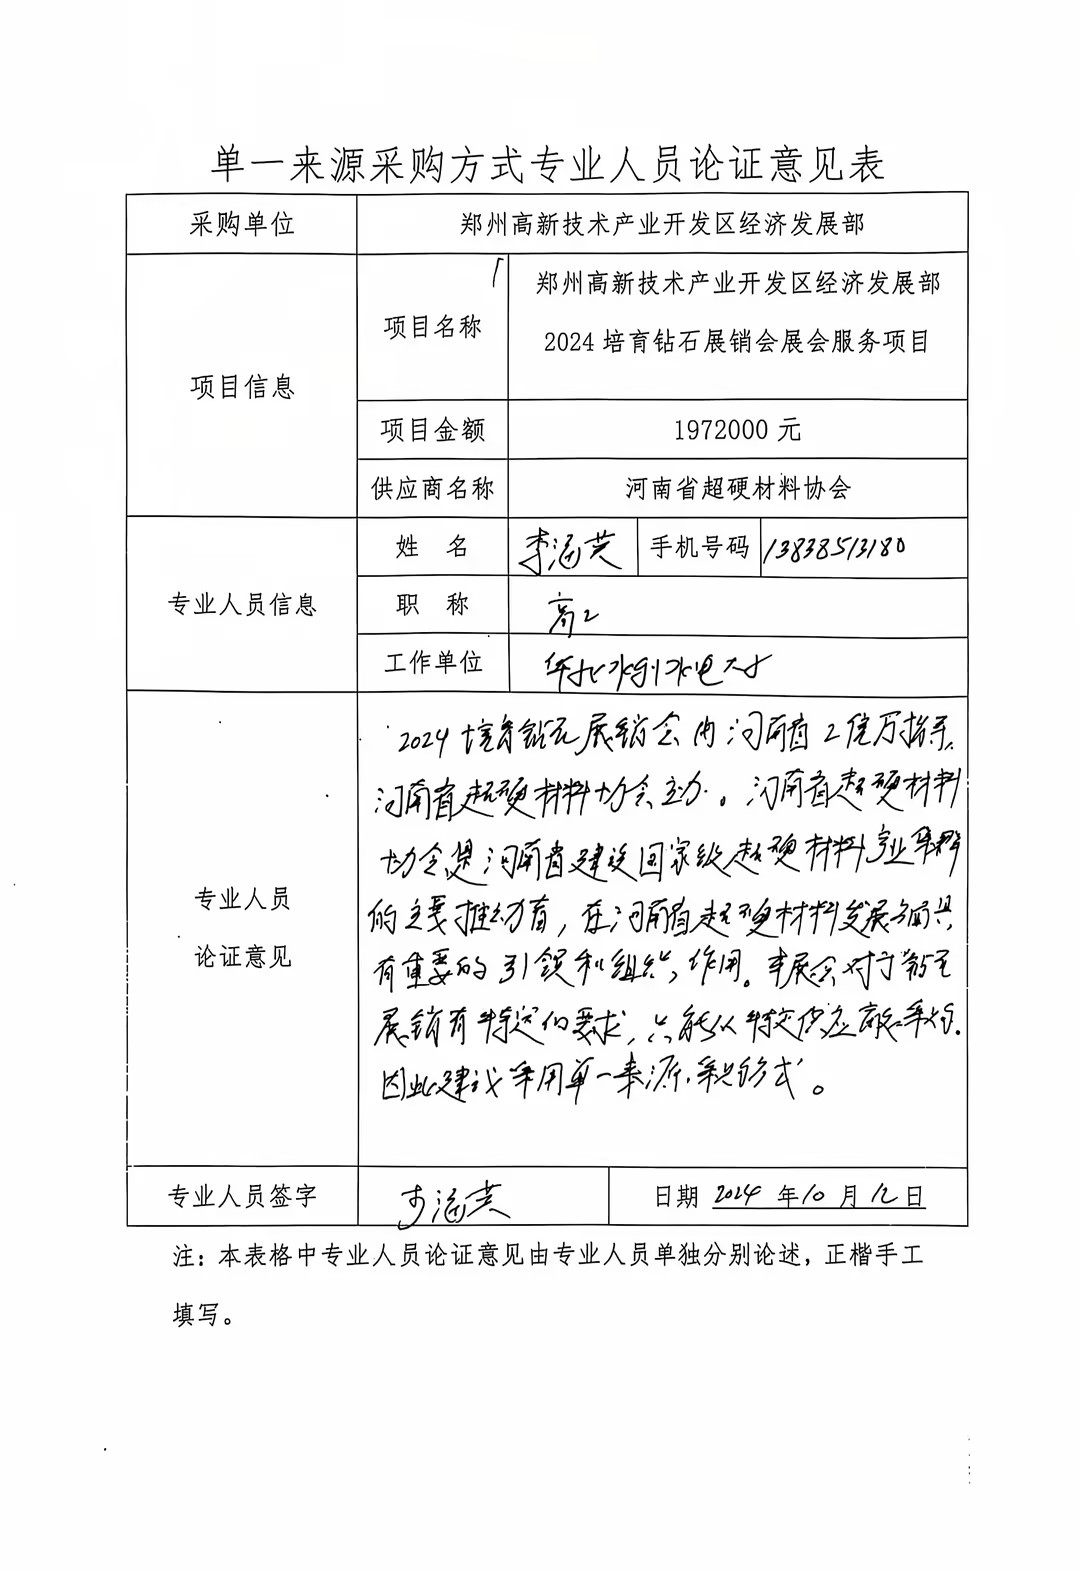 单一来源采购方式专业人员论证意见表
采购单位 郑州高新技术产业开发区经济发展部
项目信息
项目名称
郑州高新技术产业开发区经济发展部
2024 培育钻石展销会展会服务项目
项目金额 1972000 元
供应商名称 河南省超硬材料协会
专业人员信息
姓 名 李涵芸 手机号码 13838513180
职 称 高工
工作单位 华北水利水电大学
专业人员
论证意见
2024培育钻石展销会由河南省工信厅指导,
河南省超硬材料协会主办。河南省超硬材料
协会是河南省建设国家级超硬材料产业集群
的主要推动者,在河南省超硬材料发展方面具
有重要的引领和组织作用。本展会对于钻石
展销有特定的要求,只能从特定供应商采购.
因此建议采用单一来源采购方式。
专业人员签字 李涵芸 日期 2024 年 10 月 12 日
注:本表格中专业人员论证意见由专业人员单独分别论述,正楷手工
填写。